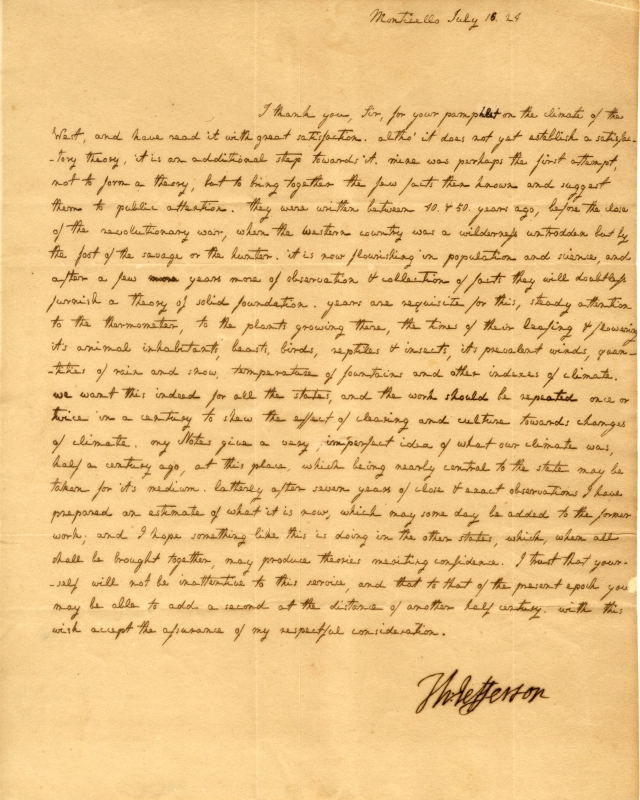 Monticello July 16. 24
I thank you, Sir, for your pamphlet on the climate of the
West, and have read it with great satisfaction. altho' it does not yet establish a satisfac-
-tory theory, it is an additional step towards it. mine was perhaps the first attempt,
not to form a theory, but to bring together the few facts then known and suggest
them to public attention. they were written between 40. & 50. years ago, before the close
of the revolutionary war, when the western country was a wilderness untrodden but by
the foot of the savage or the hunter. it is now flourishing in population and science, and
after a few years more of observation & collection of facts they will doubtless
furnish a theory of solid foundation. years are requisite for this, steady attention
to the thermometer, to the plants growing there, the times of their leafing & flowering
it's animal inhabitants, beasts, birds, reptiles & insects, it's prevalent winds, quan-
-tities of rain and snow, temperature of fountains and other indexes of climate.
we want this indeed for all the states, and the work should be repeated once or
twice in a century to shew the effect of clearing and culture towards changes
of climate. my Notes give a very imperfect idea of what our climate was,
half a century ago, at this place, which being nearly central to the state may be
taken for it's medium. latterly after seven years of close & exact observations I have
prepared an estimate of what it is now, which may some day be added to the former
work; and I hope something like this is doing in the other states, which, when all
shall be brought together, may produce theories meriting confidence. I trust that your-
-self will not be inattentive to this service, and that to that of the present epoch you
may be able to add a second at the distance of another half century. with this
wish accept the assurance of my respectful consideration.
Th: Jefferson